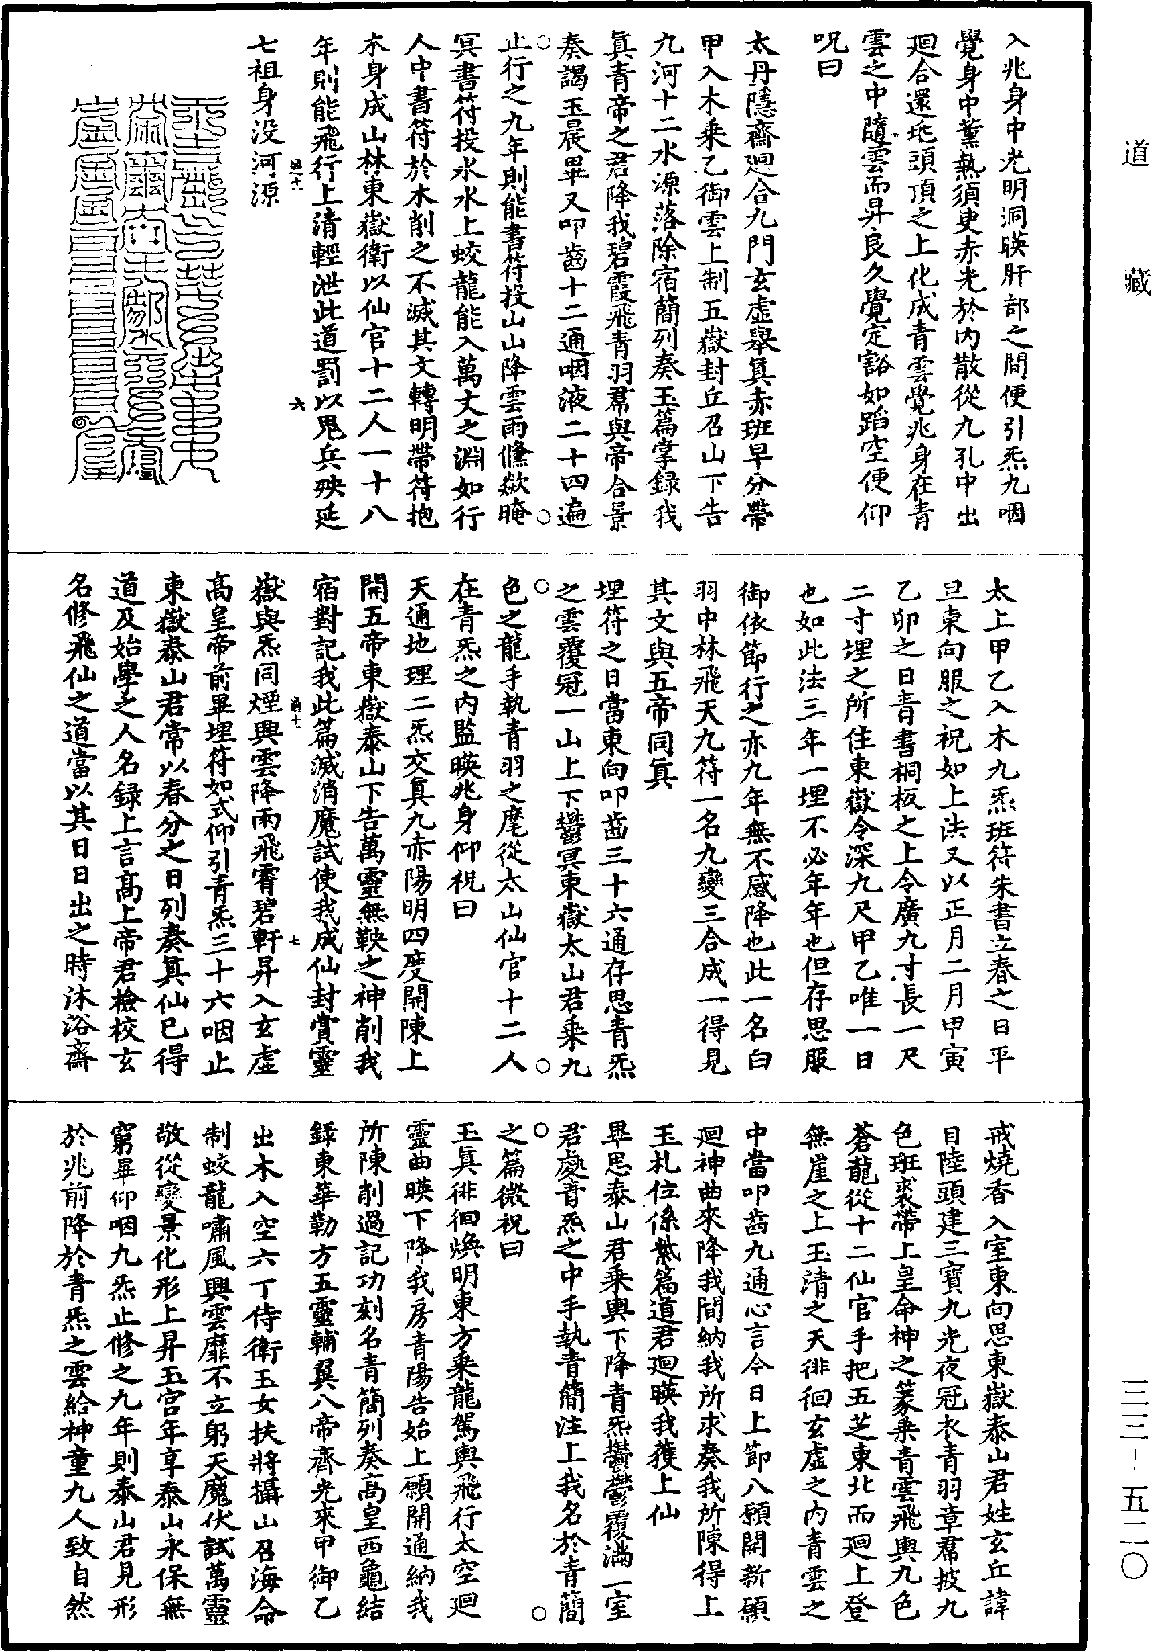 道藏
入兆身中光明洞暎肝部之間便引炁九咽
覺身中薰熱須臾赤光於內散從九孔中出
迴合還地頭頂之上化成青雲覺兆身在青
雲之中隨雲而昇良久覺定豁如蹈空便仰
呪曰
太丹隱齋迴合九門玄虛舉真赤班早分帶
甲入木乘乙御雲上制五嶽封丘召山下告
九河十二水源落除宿簡列奏玉篇掌録我
真青帝之君降我碧霞飛青羽帬與帝合景
奏謁玉晨畢又叩齒十二通咽液二十四遍
止行之九年則能書符投山山降雲雨儵欻晻
冥書符投水水上蛟龍能入萬丈之淵如行
人中書符於木削之不滅其文轉明帶符抱
本身成山林東嶽衛以仙官十二人一十八
年則能飛行上清輕泄此道罰以鬼兵殃延
七祖身没河源
太上甲乙入木九炁班符朱書立春之日平
旦東向服之祝如上法又以正月二月甲寅
乙卯之日青書桐板之上令廣九寸長一尺
二寸埋之所住東嶽令深九尺甲乙唯一日
也如此法三年一埋不必年年也但存思服
御依節行之亦九年無不感降也此一名白
羽中林飛天九符一名九變三合成一得見
其文與五帝同真
埋符之日當東向叩齒三十六通存思青炁
之雲覆冠一山上下鬱冥東嶽太山君乘九
色之龍手執青羽之麾從太山仙官十二人
在青炁之内監暎兆身仰祝曰
天通地理二炁交真九赤陽明四度開陳上
開五帝東嶽泰山下告萬靈無鞅之神削我
宿對記我此篇滅消魔試使我成仙封賞靈
嶽與炁同煙興雲降雨飛霄碧軒昇入玄虛
高皇帝前畢埋符如式仰引青炁三十六咽止
東嶽泰山君常以春分之日列奏真仙已得
道及始學之人名録上言高上帝君檢校玄
名修飛仙之道當以其日日出之時沐浴齋
戒燒香入室東向思東嶽泰山君姓玄丘諱
目陸頭建三寶九光夜冠衣青羽章帬披九
色班裘帶上皇命神之篆乘青雲飛輿九色
蒼龍從十二仙官手把五芝東北而迴上登
無崖之上玉清之天徘徊玄虛之內青雲之
中當叩齒九通心言今日上節八願開新願
迴神曲來降我間納我所求奏我所陳得上
玉札位係紫篇道君迴暎我獲上仙
畢思泰山君乘輿下降青炁鬱鬱覆滿一室
君處青炁之中手執青簡注上我名於青簡
之篇微祝曰
玉真徘徊煥明東方乘龍駕輿飛行太空迴
靈曲暎下降我房青陽告始上願開通納我
所陳削過記功刻名青簡列奏高皇西龜結
録東華勒方五靈輔翼八帝齊光來甲御乙
出木入空六丁侍衛玉女扶將攝山召海命
制蛟龍嘯風興雲靡不立躬天魔伏試萬靈
敬從變景化形上昇玉宮年享泰山永保無
窮畢仰咽九炁止修之九年則泰山君見形
於兆前降於青炁之雲給神童九人致自然
三三-五二〇